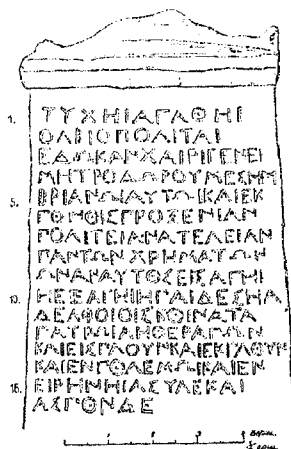 1. ΤΥΧΗΙΑΓΑΘΗΙ
ΟΛΒΙΟΠΟΛΙΤΑΙ
ΕΔΩΚΑΝΧΑΙΡΙΓΕΝΕΙ
ΜΗΤΡΟΔΩΡΟΥΜΕΣΗΜ
5. ΒΡΙΑΝΩΙΑΥΤΩΙΚΑΙΕΚ
ΓΟΝΟΙΣΠΡΟΞΕΝΙΑΝ
ΠΟΛΙΤΕΙΑΝΑΤΕΛΕΙΑΝ
ΠΑΝΤΩΝΧΡΗΜΑΤΩΝ
ΩΝΑΝΑΥΤΟΣΕΙΣΑΓΗΙ
10. ΗΕΞΑΓΗΙΗΠΑΙΔΕΣΗΑ
ΔΕΛΦΟΙΟΙΣΚΟΙΝΑΤΑ
ΠΑΤΡΩΙΑΗΘΕΡΑΠΩΝ
ΚΑΙΕΙΣΠΛΟΥΝΚΑΙΕΚΠΛΟΥΝ
ΚΑΙΕΝΠΟΛΕΜΩΙΚΑΙΕΝ
15. ΕΙΡΗΝΗΙΑΣΥΛΕΚΑΙ
ΑΣΠΟΝΔΕ